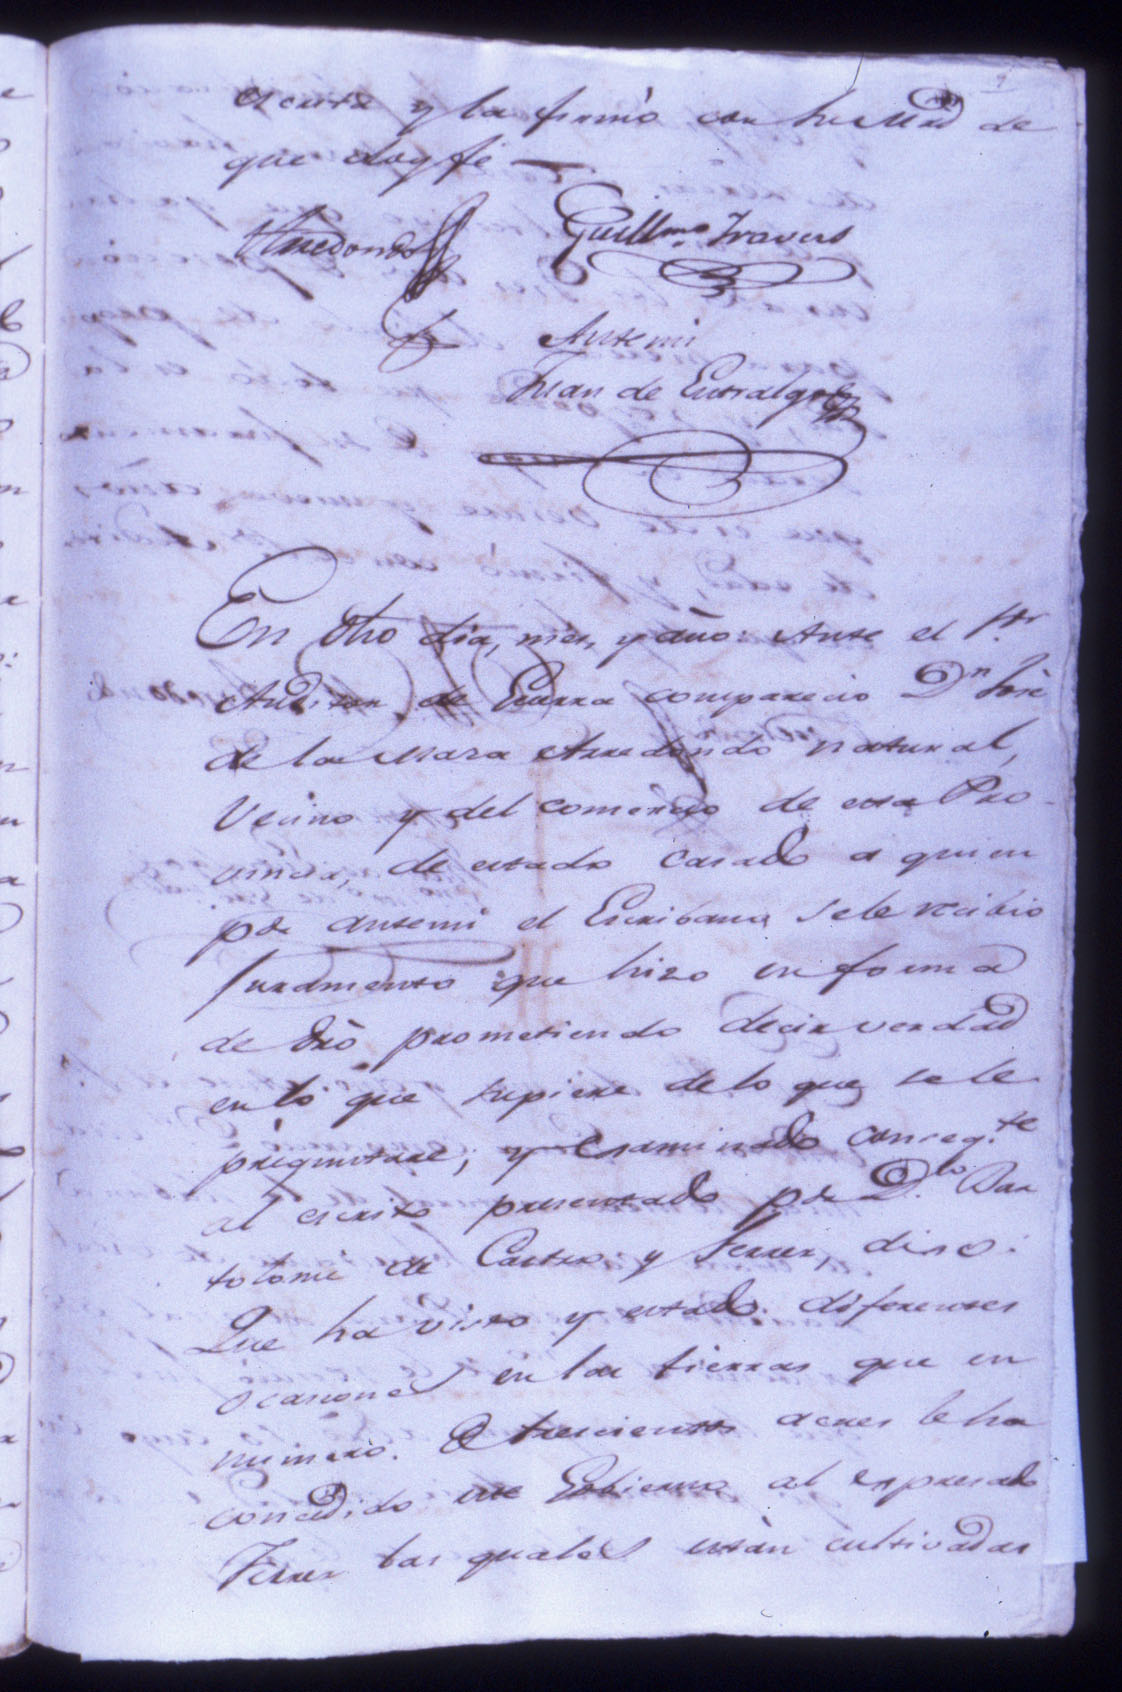 escrita y la firmó con su Mrd de
que doy fé
Arredondo Guillmo Travers
Antemi
Juan de Entralgo
En dho dia, mes, y año: Ante el Sor
Auditor de Guerra comparecio Dn José
de la Maza Arredondo natural,
Vecino y del comercio de esta Pro-
vincia, de estado casado a quien
pr antemi el Escribano, sele recibio
juramento que hizo en forma
de dro prometiendo decir verdad
en lo que supiere de lo que sele
preguntare; y examinado conseqte
al escrito presentado pr D. Bar
tolome de Castro y Ferrer, dixo:
Que ha visto y estado diferentes
ocasiones en las tierras que en
numero de trescientos acres le ha
concedido este Gobierno al expresado
Ferrer las quales están cultivadas